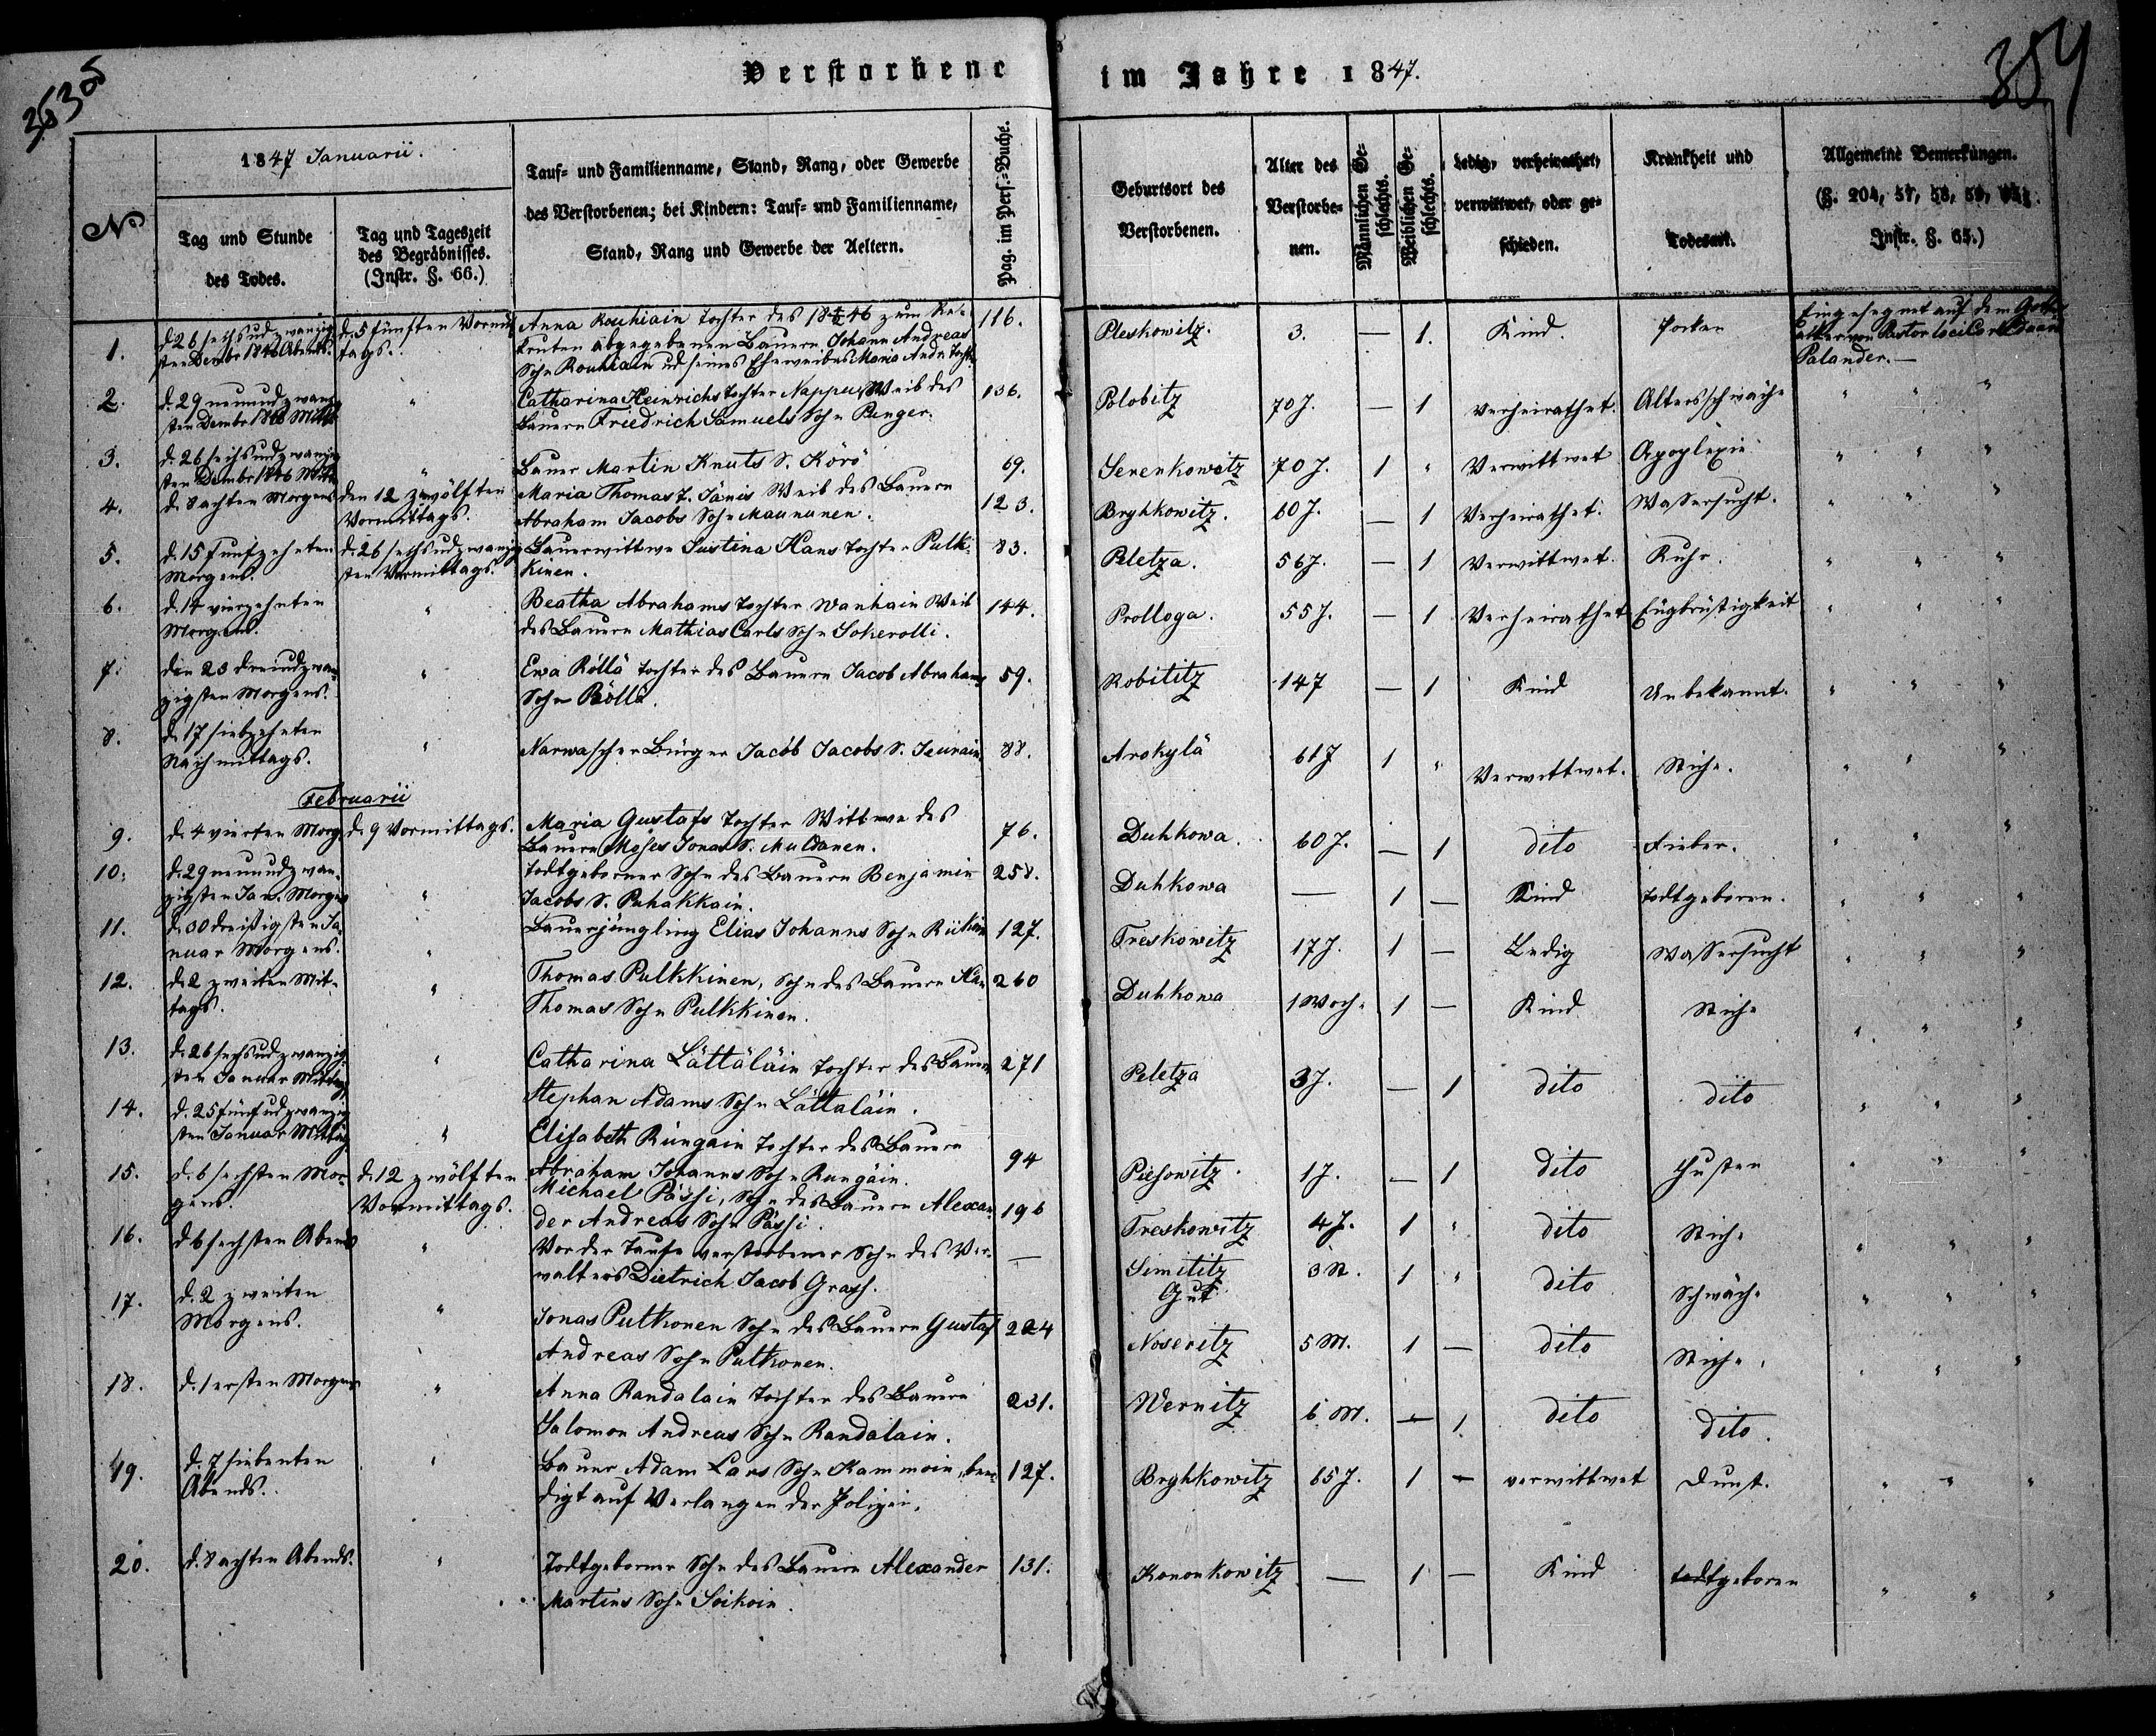 Verstorbene im Jahre 1847.
384
1847 Januarii.
No
Tag und Stunde des Todes.
Tag und Tageszeit des Begräbnisses. (Instr. §. 66.)
Tauf- und Familienname, Stand, Rang, oder Gewerbe
des Verstorbenen; bei Kindern: Tauf- und Familienname,
Stand, Rang und Gewerbe der Aeltern.
Pag. im Pers.-Buche.
Geburtsort des Verstorbenen.
Alter des Verstorbenen.
Männlichen Geschlechts.
Weiblichen Geschlechts.
Ledig, verheirathet, verwittwet, oder geschieden.
Krankheit und Todesart.
Allgemeine Bemerkungen.
(§. 204, 57, 58, 59,
Instr. §. 65.)
1. d. 26 sechsudzwanzig d. 5 fünften Vormit Anna Rouhiain Tochter des 1846 zum Re- 116. Pleskowitz. 3. — 1. Kind. Pocken Eingesegnet auf dem Gottes
sten Dembr 1846 Abends. tags. kruten abgegebenen Bauern Johann Andreas acker von Pastor loci Carl
Sohn Rouhiain ud seines Eheweibes Maria Andr. Tocht. Palander.—
2. d. 29 neunudzwanzig " Catharina Heinrichs Tochter Nappu Weib des 136. Polobitz 70 J. — 1 Verheirathet. Altersschwäche " " "
sten Dembr 1846 Mitt. Bauern Friedrich Samuels Sohn Penger.
3. d. 26 sechsudzwanzig " Bauer Martin Knuts S. Körö 69. Serenkowitz 70 J. 1 " Verwittwet Apoplexie " " "
sten Dembr 1846 Mitt.
4. d. 8 achten Morgens den 12 zwölften Maria Thomas T. Jänis Weib des Bauern 123. Bryhkowitz. 60 J. — 1 Verheirathet. Wassersucht. " " "
Vormittags. Abraham Jacobs Sohn Maununen.
5. d. 15 Funfzehnten d. 26 sechsudzwanzig Bauerwittwe Justina Hans Tochter Pulk- 83. Peletza. 56 J. — 1 Verwittwet. Ruhr. " " "
Morgens. sten Vormittags. kinen.
6. d. 14 vierzehnten " Beatha Abrahams Tochter Wanhain Weib 144. Prolloga. 55 J. — 1 Verheirathet Engbrüstigkeit " " "
Morgens. des Bauern Mathias Carls Sohn Sokerolli.
7. den 23 dreiudzwan- " Ewa Röllä Tochter des Bauern Jacob Abrahams 59. Robititz — 1 Kind Unbekannt. " " "
zigsten Morgens. Sohn Röllä.
8. d. 17 siebzehnten " Narwascher Bürger Jacob Jacobs S. 88. Arokylä 61 J 1 " Verwittwet. Stiche. " " "
Nachmittags.
Februarii
9. d. 4 vierten Morg. d. 9 Vormittags. Maria Gustafs Tochter Wittwe des 76. Duhkowa. 60 J. — 1 dito Fieber. " " "
Bauern Moses Jonas S. Muldanen.
10. d. 29 neunudzwan- " Todtgeborner Sohn des Bauern Benjamin 258. Duhkowa — 1 — Kind todtgeboren. " " "
zigsten Jan. Morgens Jacobs S. Puhakkain.
11. d. 30 dreißigsten Ja- " Bauerjüngling Elias Johanns Sohn 127. Treskowitz 17 J. 1 — Ledig Wassersucht " " "
nuar Morgens.
12. d. 2 zweiten Mit- " Thomas Pulkkinen, Sohn des Bauern 260 Duhkowa 1 Woch. 1 — Kind Stiche " " "
tags. Thomas Sohn Pulkkinen.
13. d. 26 sechsudzwanzig " Catharina Lättäläin Tochter des Bauern 271 Peletza 3 J. — 1 dito dito " " "
sten Januar Mittag Stephan Adams Sohn Lättaläin.
14. d. 25 fünfudzwanzig " Elisabeth Rungain Tochter des Bauern 94 1 J. — 1 dito Husten " " "
sten Januar Mittag Abraham Johanns Sohn Rungäin.
15. d. 6 sechsten Mor- d. 12 zwölften Michael Pässi, Sohn des Bauern Alexan- 196 Treskowitz 4 J. 1 " dito Stiche " " "
gens. Vormittags. der Andreas Sohn Pässi.
16. d 6 sechsten Abends " Vor der Taufe verstorbener Sohn des Ver- — Simititz 3 St. 1 " dito Schwäche " " "
walters Dietrich Jacob Grass. Gut
17. d. 2 zweiten " Jonas Putkonen Sohn des Bauern Gustaf 224 Noseritz 5 M. 1 — dito Stiche. " " "
Morgens. Andreas Sohn Putkonen.
18. d. 1 ersten Morgens " Anna Randalain Tochter des Bauern 231. Wernitz 6 M. — 1. dito dito.
Salomon Andreas Sohn Randalain.
19. d. 7 siebenten " Bauer Adam Lars Sohn Kammoin, beer- 127. Bryhkowitz 65 J. 1 — verwittwet Dunst. " " "
Abends. digt auf Verlangen der Polizei.
20. d. 8 achten Abends. " Todtgeborner Sohn des Bauern Alexander 131. Kononkowitz — 1 — Kind todtgeboren " " "
Martins Sohn Soikoin.